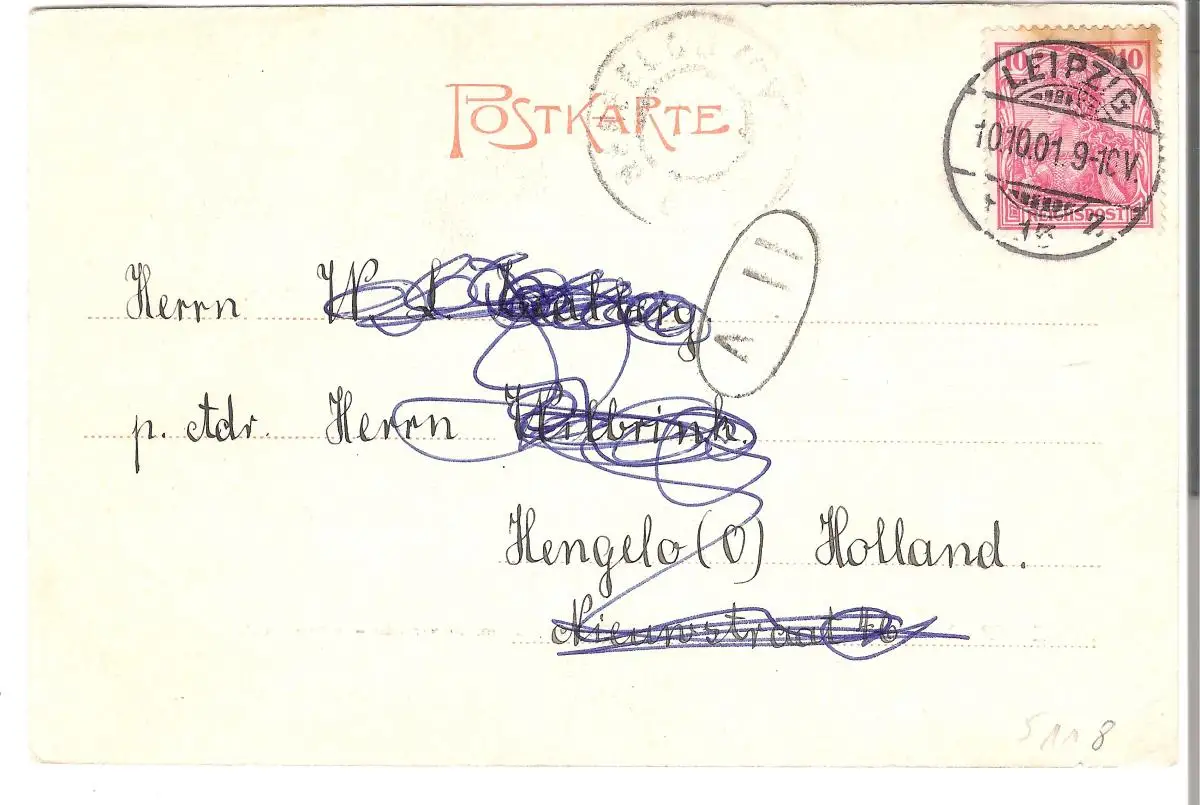 POSTKARTE
10 10
REICHSPOST
LEIPZIG
10.10.01. 9-10V.
Herrn W. L.
p. Adr. Herrn Wilbrink.
Hengelo (O) Holland.
Nieuwstraat 46
5118